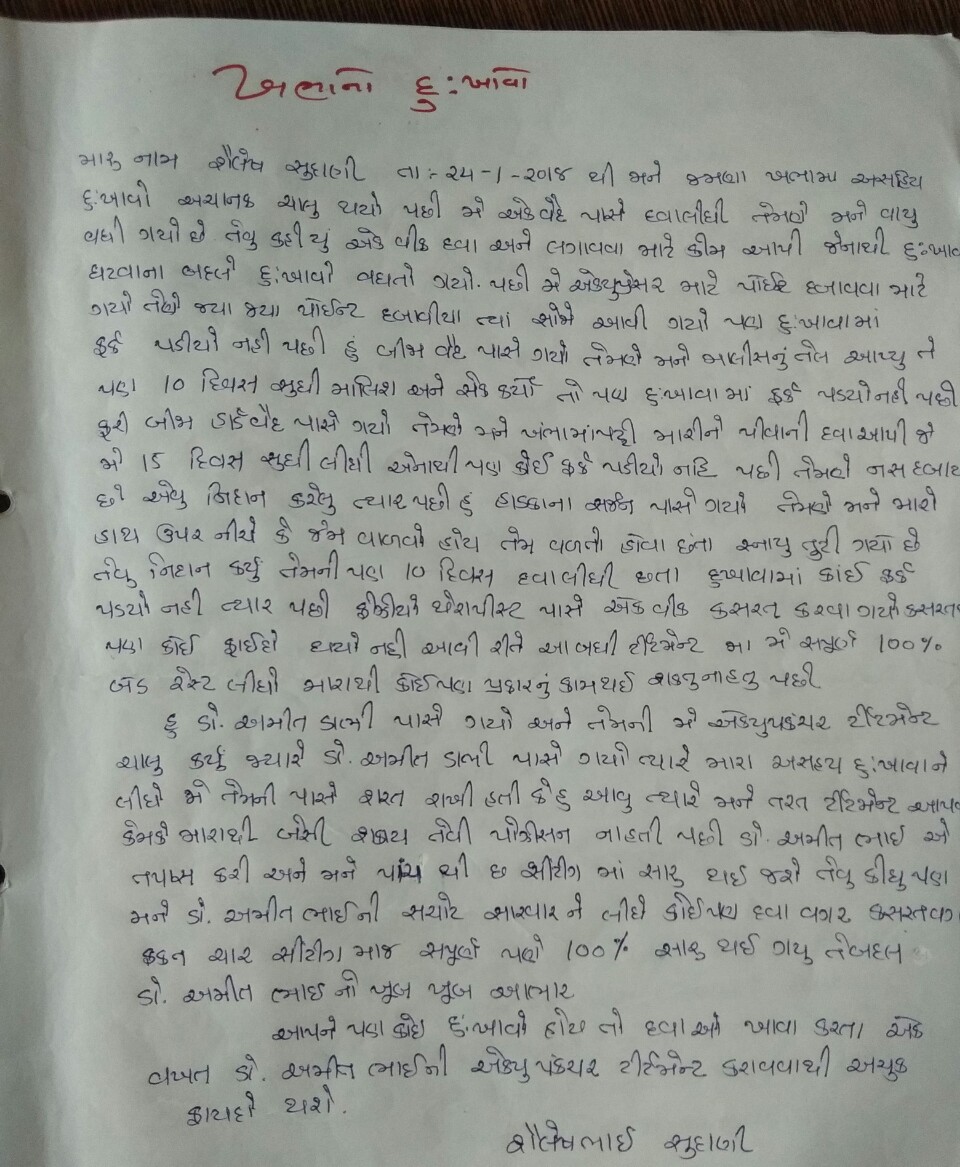 ખભાનો દુ:ખાવો
મારુ નામ શૈલેષ સુદાણી તા:- ૨૫-૧-૨૦૧૪ થી મને જમણા ખભામા અસહિય
દુ:ખાવો અચાનક ચાલુ થયો પછી મે એક વૈદ પાસે દવાલીધી તેમણે મને વાયુ
વધી ગયો છે તેવુ કહીયું એક વીક દવા અને લગાવવા માટે ક્રીમ આપી જેનાથી દુ:ખાવ
ઘટવાના બદલે દુ:ખાવો વધતો ગયો. પછી મે એક્યુપ્રેસર માટે પોઇંટ દબાવવા માટે
ગયો તેણે જ્યા જ્યા પોઈન્ટ દબાવીયા ત્યાં સોજો આવી ગયો પણ દુ:ખાવામાં
ફર્ક પડીયો નહી પછી હું બીજા વૈદ પાસે ગયો તેમણે મને માલીસનું તેલ આપ્યુ તે
પણ 10 દિવસ સુધી માલિશ અને સેક કર્યો તો પણ દુ:ખાવામાં ફર્ક પડ્યો નહી પછી
ફરી બીજા હાડવૈદ પાસે ગયો તેમણે મને ખંભામાંપટ્ટી મારીને પીવાની દવા આપી જે
મે 15 દિવસ સુધી લીધી એનાથી પણ કોઈ ફર્ક પડીયો નહિ પછી તેમણે નસ દબાય
છે એવુ નિદાન કરેલુ ત્યાર પછી હું હાડકાના સર્જન પાસે ગયો તેમણે મને મારો
હાથ ઉપર નીચે કે જેમ વાળવો હોય તેમ વળતો હોવા છતા સ્નાયુ તુટી ગયો છે
તેવુ નિદાન કર્યું તેમની પણ 10 દિવસ દવાલીધી છતા દુખાવામાં કાંઈ ફર્ક
પડયો નહી ત્યાર પછી ફીઝીયો થેરાપીસ્ટ પાસે એક વીક કસરત કરવા ગયો કસરત
પણ કોઈ ફાઈદો થયો નહી આવી રીતે આ બધી ટ્રીટમેન્ટ મા મે સંપુર્ણ 100%
બેડ રેસ્ટ લીધો મારાથી કોઈપણ પ્રકારનું કામ થઈ શકતુ નાહતુ પછી
હુ ડો. અમીત ડાભી પાસે ગયો અને તેમની મે એક્યુપંકચર ટ્રીટમેન્ટ
ચાલુ કર્યું જ્યારે ડો. અમીત ડાભી પાસે ગયો ત્યારે મારા અસહ્ય દુ:ખાવાને
લીધે મે તેમની પાસે શરત રાખી હતી કે હુ આવુ ત્યારે મને તરત ટ્રીટમેન્ટ આપ
કેમકે મારાથી બેસી શકાય તેવી પોઝીસન નાહતી પછી ડો. અમીત ભાઈ એ
તપાસ કરી અને મને પાંચ થી છ સીટીંગ માં સારુ થઈ જશે તેવુ કીધુ પણ
મને ડો. અમીત ભાઈની સચોટ સારવાર ને લીધે કોઈપણ દવા વગર કસરત વગ
ફક્ત ચાર સીટીંગ માજ સંપુર્ણ પણે 100% સારુ થઈ ગયુ તેબદલ
ડો. અમીત ભાઈ નો ખુબ ખુબ આભાર
આપને પણ કોઇ દુ:ખાવો હોય તો દવાઓ ખાવા કરતા એક
વખત ડો. અમીત ભાઈની એક્યુપંકચર ટ્રીટમેન્ટ કરાવવાથી અચુક
ફાયદો થશે.
શૈલેષભાઈ સુદાણી